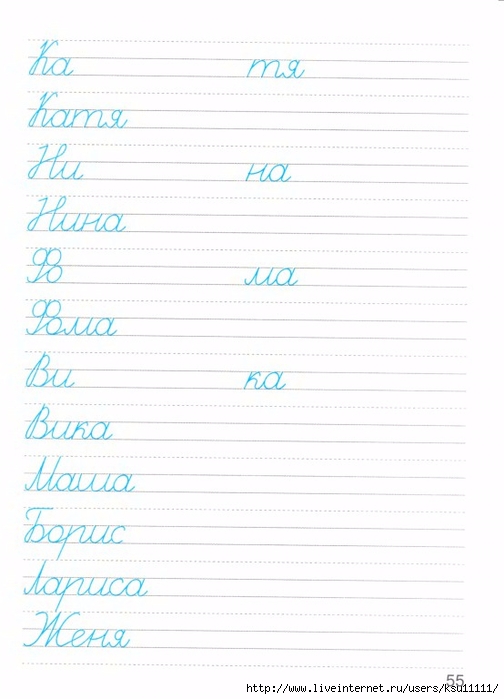 Ка тя
Катя
Ни на
Нина
Фо ма
Фома
Ви ка
Вика
Маша
Борис
Лариса
Женя
55
http://www.liveinternet.ru/users/ksu11111/